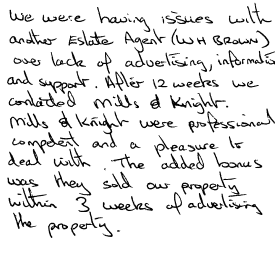 We were having issues with
another Estate Agent (WH BROWN)
over lack of advertising, informatio
and support. After 12 weeks we
contacted Mills & Knight.
Mills & Knight were professional
competent and a pleasure to
deal with. The added bonus
was they sold our property
within 3 weeks of advertising
the property.